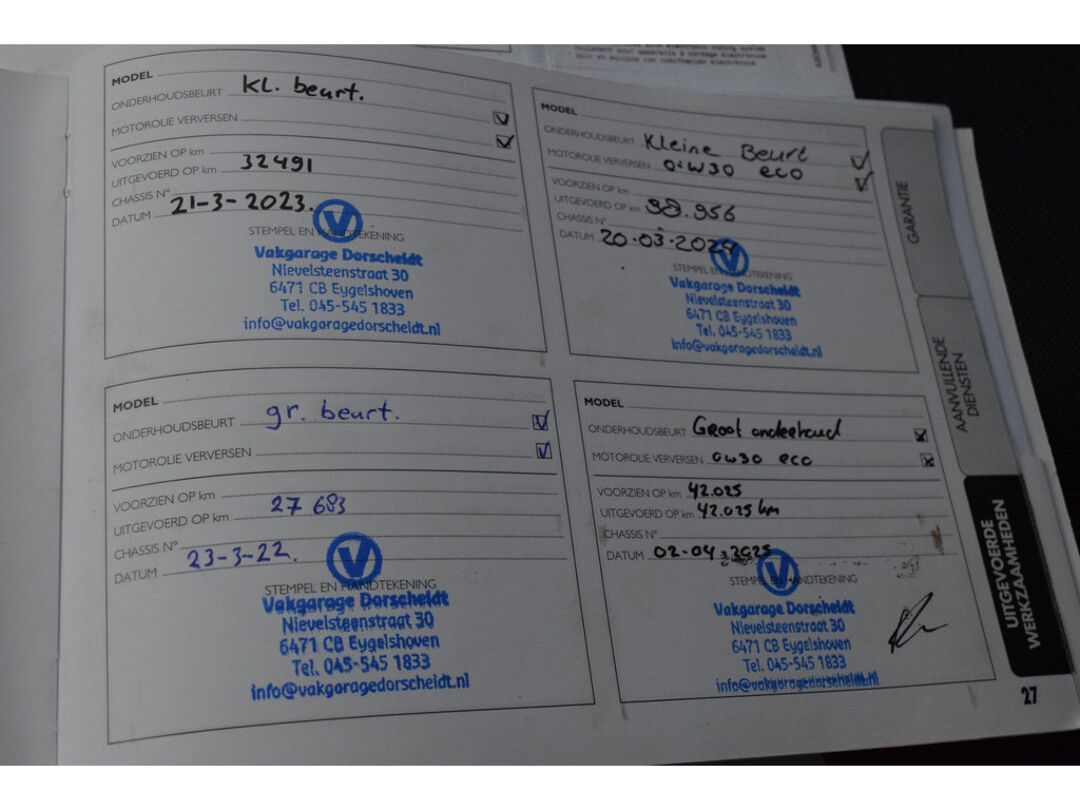 MODEL
ONDERHOUDSBEURT kl. beurt.
MOTOROLIE VERVERSEN
VOORZIEN OP km
UITGEVOERD OP km 32491
CHASSIS N°
DATUM 21-3-2023.
STEMPEL EN HANDTEKENING
Vakgarage Dorscheidt
Nievelsteenstraat 30
6471 CB Eygelshoven
Tel. 045-545 1833
info@vakgaragedorscheidt.nl
MODEL
ONDERHOUDSBEURT Kleine Beurt
MOTOROLIE VERVERSEN 0w30 eco
VOORZIEN OP km
UITGEVOERD OP km 38.956
CHASSIS N°
DATUM 20-03-2024
STEMPEL EN HANDTEKENING
Vakgarage Dorscheidt
Nievelsteenstraat 30
6471 CB Eygelshoven
Tel. 045-545 1833
info@vakgaragedorscheidt.nl
MODEL
ONDERHOUDSBEURT gr. beurt.
MOTOROLIE VERVERSEN
VOORZIEN OP km
UITGEVOERD OP km 27 683
CHASSIS N°
DATUM 23-3-22.
STEMPEL EN HANDTEKENING
Vakgarage Dorscheidt
Nievelsteenstraat 30
6471 CB Eygelshoven
Tel. 045-545 1833
info@vakgaragedorscheidt.nl
MODEL
ONDERHOUDSBEURT Groot onderhoud
MOTOROLIE VERVERSEN 0w30 eco
VOORZIEN OP km 42.025
UITGEVOERD OP km 42.025 km
CHASSIS N°
DATUM 02-04-2025
STEMPEL EN HANDTEKENING
Vakgarage Dorscheidt
Nievelsteenstraat 30
6471 CB Eygelshoven
Tel. 045-545 1833
info@vakgaragedorscheidt.nl
GARANTIE
AANVULLENDE
DIENSTEN
UITGEVOERDE
WERKZAAMHEDEN
27